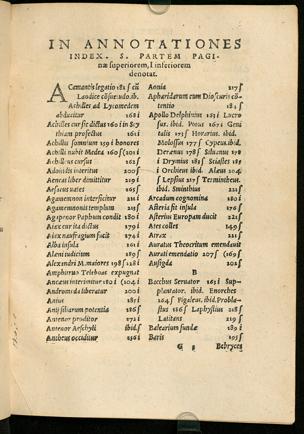 IN ANNOTATIONES
INDEX. S. PARTEM PAGI-
næ superiorem, I inferiorem
denotat.
Acamantis legatio 181 s cũ
Laodice cõsuetudo.ib.
Achilles ad Lycomedem
abducitur 168 i
Achilles cur sic dictus 160 i in Scy
thiam profectus 161 i
Achillis somnium 159 i honores
Achilli nubit Medea 160 s (201 i
Achillis cursus 162 i
Adonidis interitus 200 i
Aeneas liber dimittitur 219 i
Aesacus vates 165 s
Agamemnon interficitur 211 i
Agamemnonis templum 215
Agapenor Paphum condit 180 i
Aiax cur ita dictus 179 i
Aiax naufragium facit 174 i
Alba insula 161 i
Aleni iudicium 189 s
Alexandri M. maiores 198 s 218 i
Amphitruo Teleboas expugnat
Ancæum interimitur 180 i (104 i
Andromeda liberatur 200 i
Anius 185 i
Anij filiarum potentia 186 s
Antenor proditor 172 i
Antenor Aeschyli ibid. s
Antheus occiditur 196 i
Aonia 217 s
Aphari­darum cum Dioscuris cõ-
tentio 181 s
Apollo Delphinius 181 i Locro
rum. ibid. Ptous 167 i Geni
talis 175 i Horarius. ibid.
Molossus 177 i Cypeus.ibid.
Deranus 178 s Siluanus 178
i Drymius 185 s Sciastes 185
i Orchieus ibid. Alæus 204
s Lepsius 217 s Termintheus.
ibid. Sminthius 221 s
Arcadum cognomina 180 i
Asteria fit insula 176 s
Asterius Europam ducit 221 s
Ates colles 149 s
Atrax 221 s
Auratus Theocritum emendauit
Aurati emendatio 207 s (169 s
Ausigda 202 s
B
Bacchus Seruator 163 i Sup-
plantator. ibid. Enorches
164 s Pigaleus. ibid. Probla-
stus 186 s Laphystius 218 s
Latitans 219 s
Balearium fundæ 189 i
Baris 195 s
G 5 Bebryces